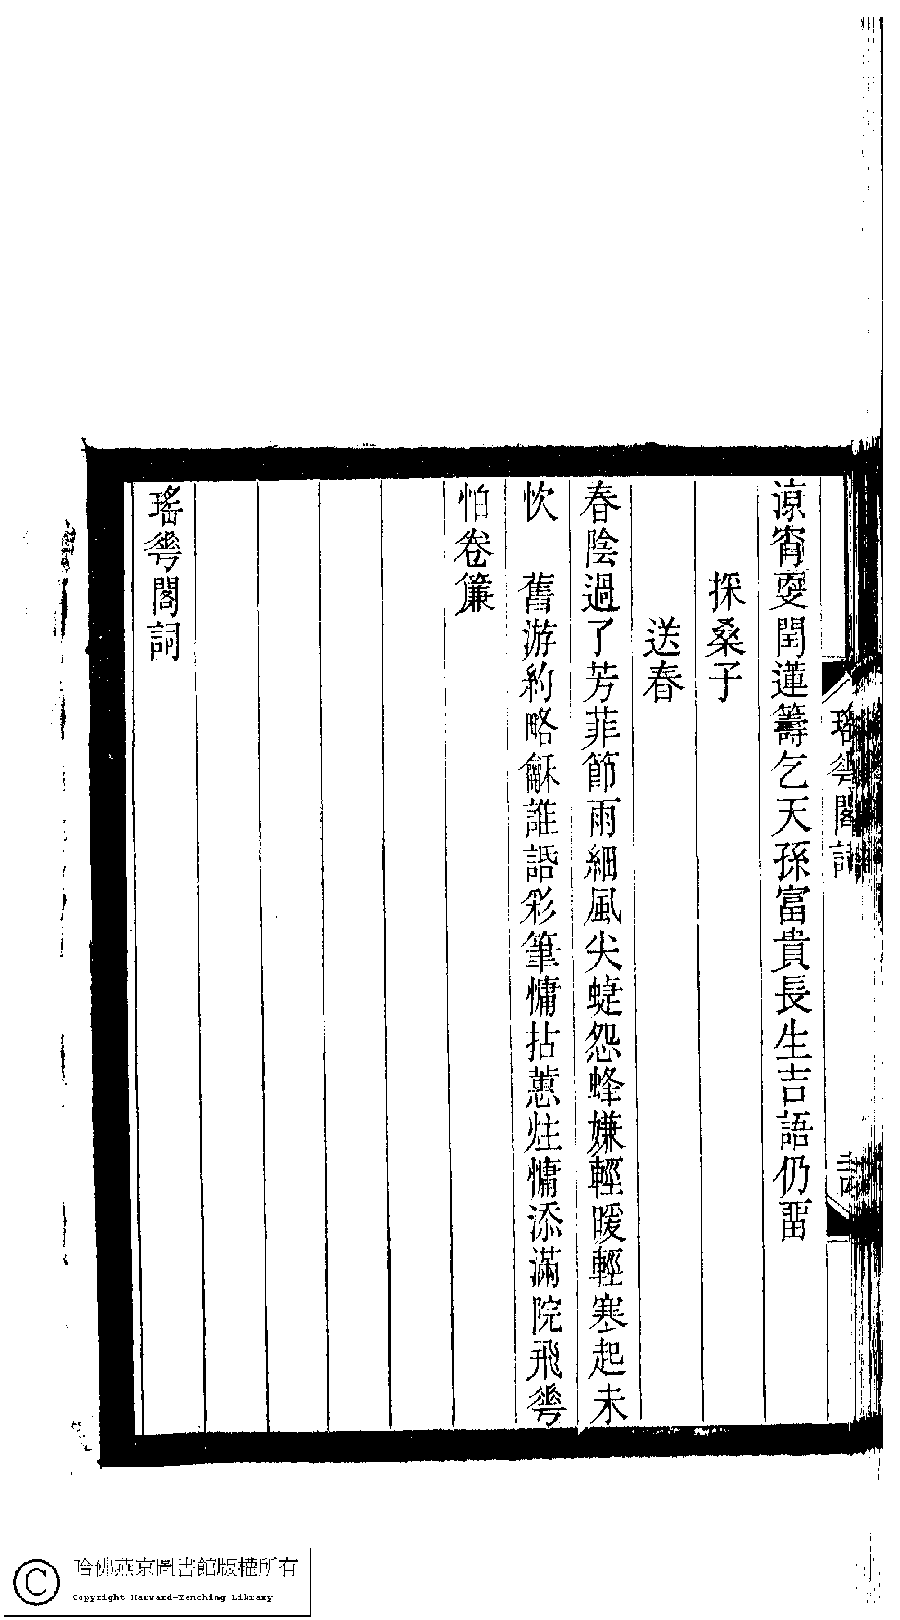 涼宵耎閏蓮籌乞天孫富貴長生吉語仍畱
採桑子
送春
春陰過了芳菲節雨細風尖蜨怨蜂嫌輕暖輕寒起未
忺　舊游約略龢誰語彩筆慵拈蕙炷慵添滿院飛蕐
怕卷簾
瑤蕐閣詞
瑤蕐閣詞
哈佛燕京圖書館版權所有
Copyright Harvard-Yenching Library